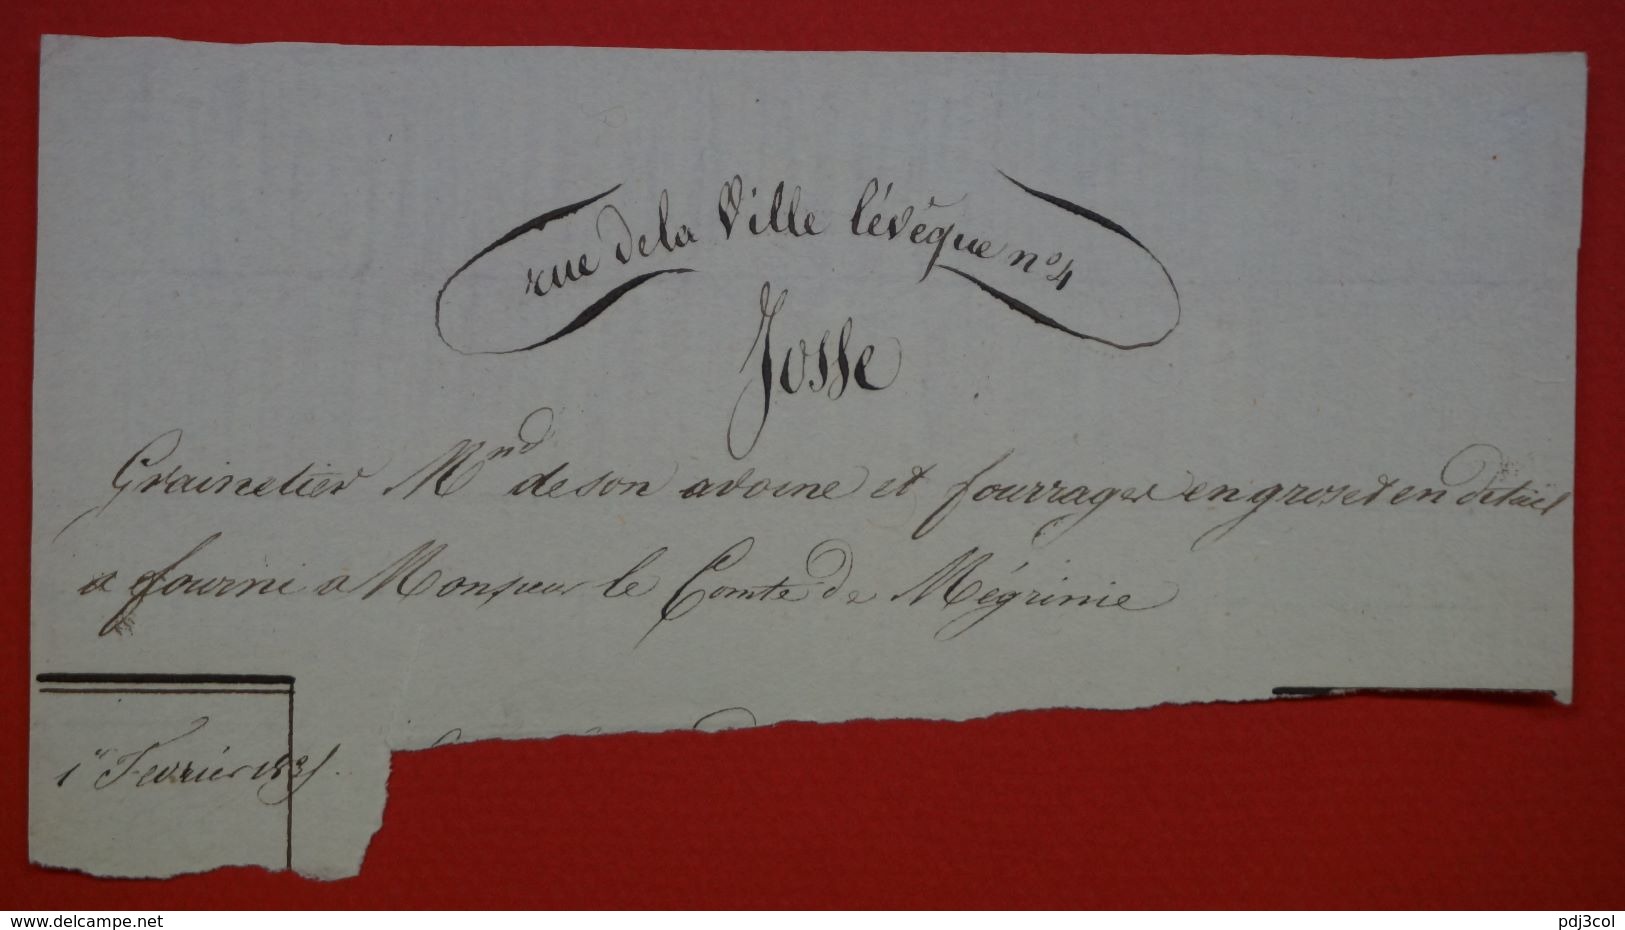 rue de la Ville lévêque n° 4
Josse
Grainetier Mnd de son avoine et fourrages en gros et en détail
a fourni a Monsieur le Comte de Mégrinie
1er Fevrier
www.delcampe.net
pdj3col